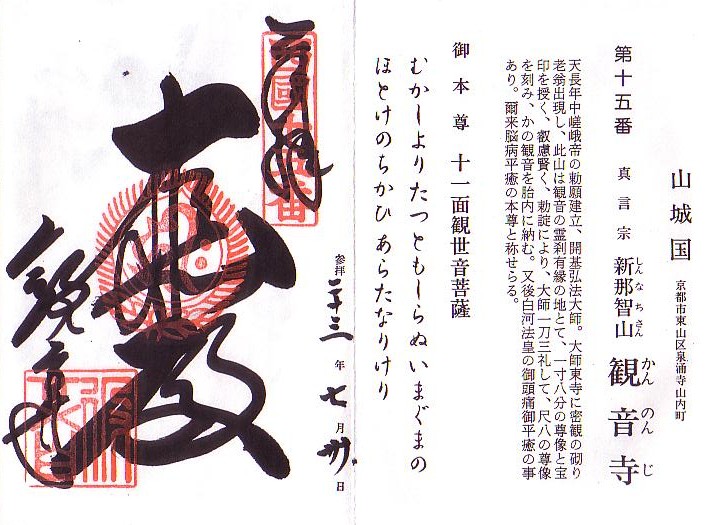 山城国 京都市東山区泉涌寺山内町
第十五番 真言宗 新那智山 観音寺
しんなちさん
かんのんじ
天長年中嵯峨帝の勅願建立、開基弘法大師。大師東寺に密観の砌り
老翁出現し、此山は観音の霊刹有縁の地とて、一寸八分の尊像と宝
印を授く、叡慮賢く、勅諚により、大師一刀三礼して、尺八の尊像
を刻み、かの観音を胎内に納む。又後白河法皇の御頭痛御平癒の事
あり。爾来脳病平癒の本尊と称せらる。
御本尊 十一面観世音菩薩
むかしよりたつともしらぬいまぐまの
ほとけのちかひあらたなりけり
奉拝
参拝二十三年七月卅日
大悲殿
観音寺